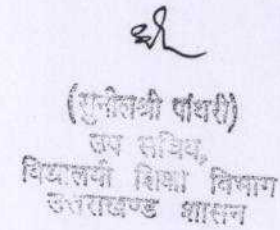 (सुनीलश्री पांथरी)
उप सचिव,
विद्यालयी शिक्षा विभाग
उत्तराखण्ड शासन